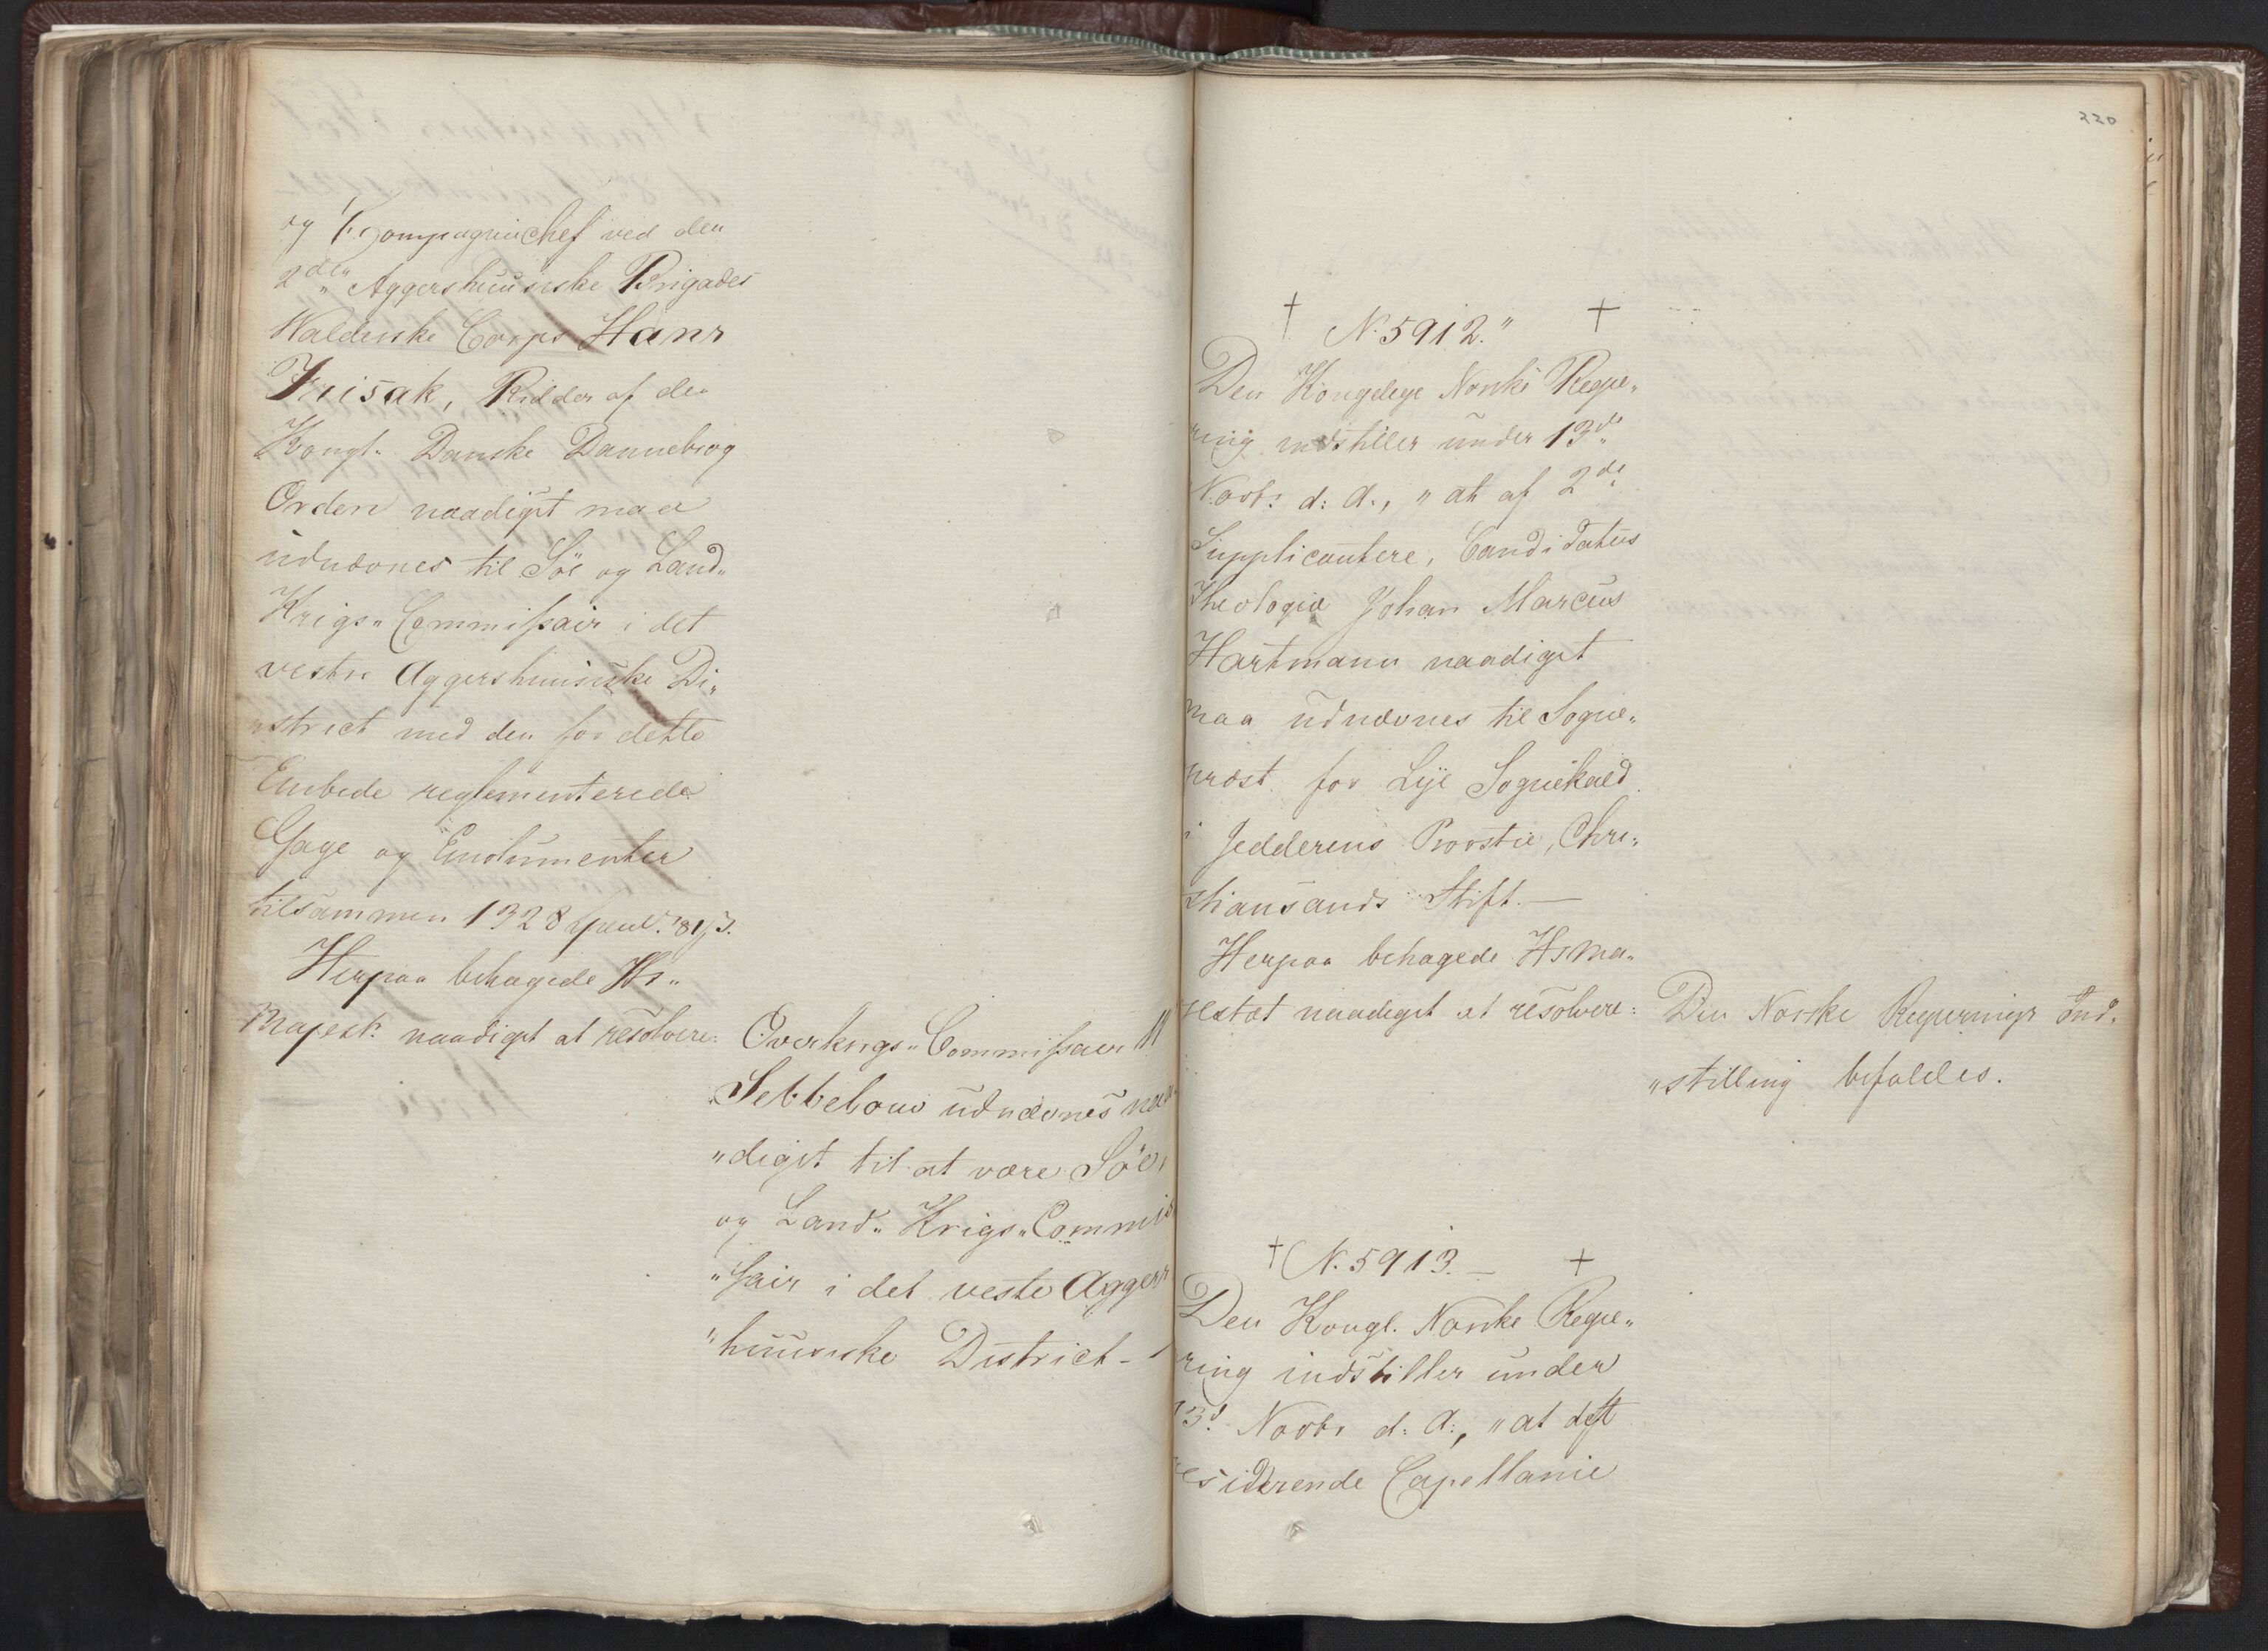 og Compagniechef ved den
2den Aggershuusiske Brigades
Waldenske Corps Hans
Frisak, Ridder af den
Kongl. Danske Dannebrog
Orden naadigst maa
udnævnes til Söe og Land„
Krigs„Commissair i det
vestre Aggershuusiske Di„
„strict med den for dette
Embede reglementerede
Gage og Emolumenter
tilsammen 1328 Specd. 81 ß.
Herpaa behagede Hs„
Majest: naadigst at resolvere:
Overkrigs„Commissair
Sebbelow udnævnes naa„
„digst til at være Söe„
og Land„Krigs„Commis
„sair i det vestre Aggers
„huusiske District –
220
† N. 5912." †
Den Kongelige Norske Reg{j}e„
ring indstiller under 13de
Novbr d: A:, „at af 2de
Supplicantere, Candidatus
Theologiæ Johan Marcus
Hartmann naadigst
maa udnævnes til Sogne„
præst for Lye Sognekald
i Jedderens Provstie, Chri„
stiansands Stift. —
Herpaa behagede Hs Ma„
jestæt naadigst at resolvere:
Den Norske Regjerings Ind„
„stilling bifaldes.
† N. 5913. — †
Den Kongl. Norske Regje„
ring indstiller under
13d Novbr d: A:, „at det
residerende Capellanie